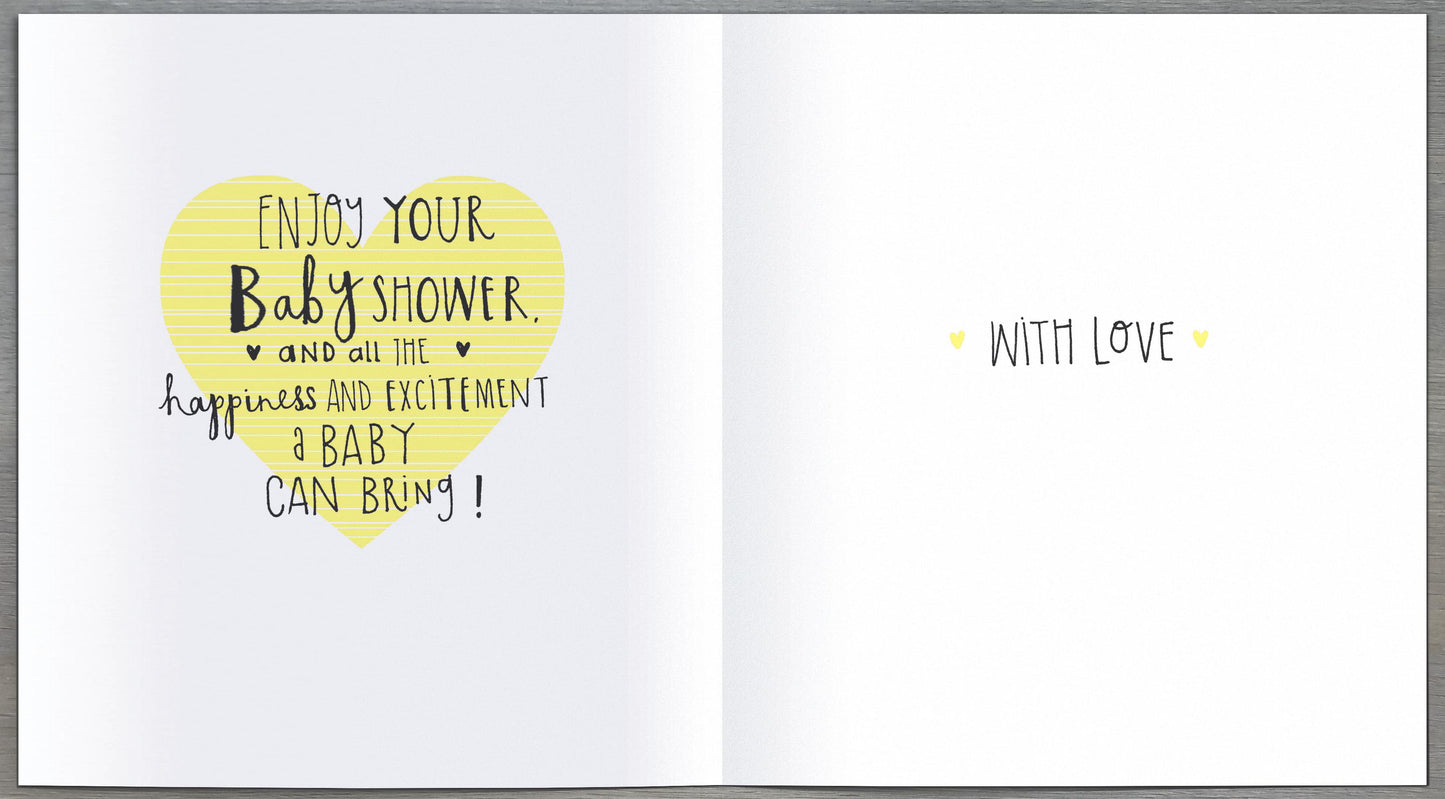 ENJOY YOUR
Baby SHOWER.
AND all THE
happiness AND EXCITEMENT
a BABY
CAN BRiNg !
WiTH LOVE